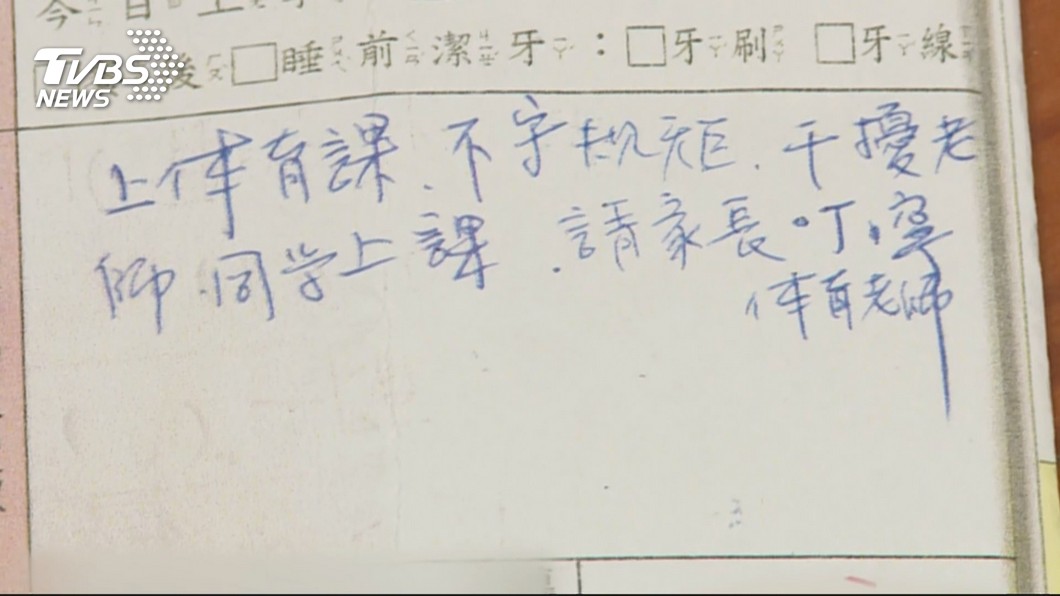 今日上
TVBS NEWS
後□睡前潔牙：□牙刷 □牙線
上体育課、不守規矩、干擾老
師、同学上課、請家長叮嚀
体育老師